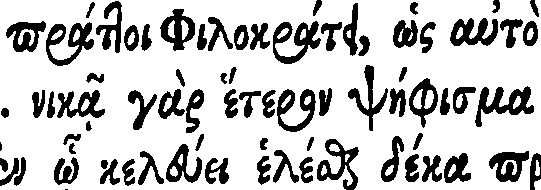 πράττοι Φιλοκράτει, ὡς αὐτὸ
. νικᾷ γὰρ ἕτερον ψήφισμα
ἐν ᾧ κελεύει ἑλέσθαι δέκα πρ